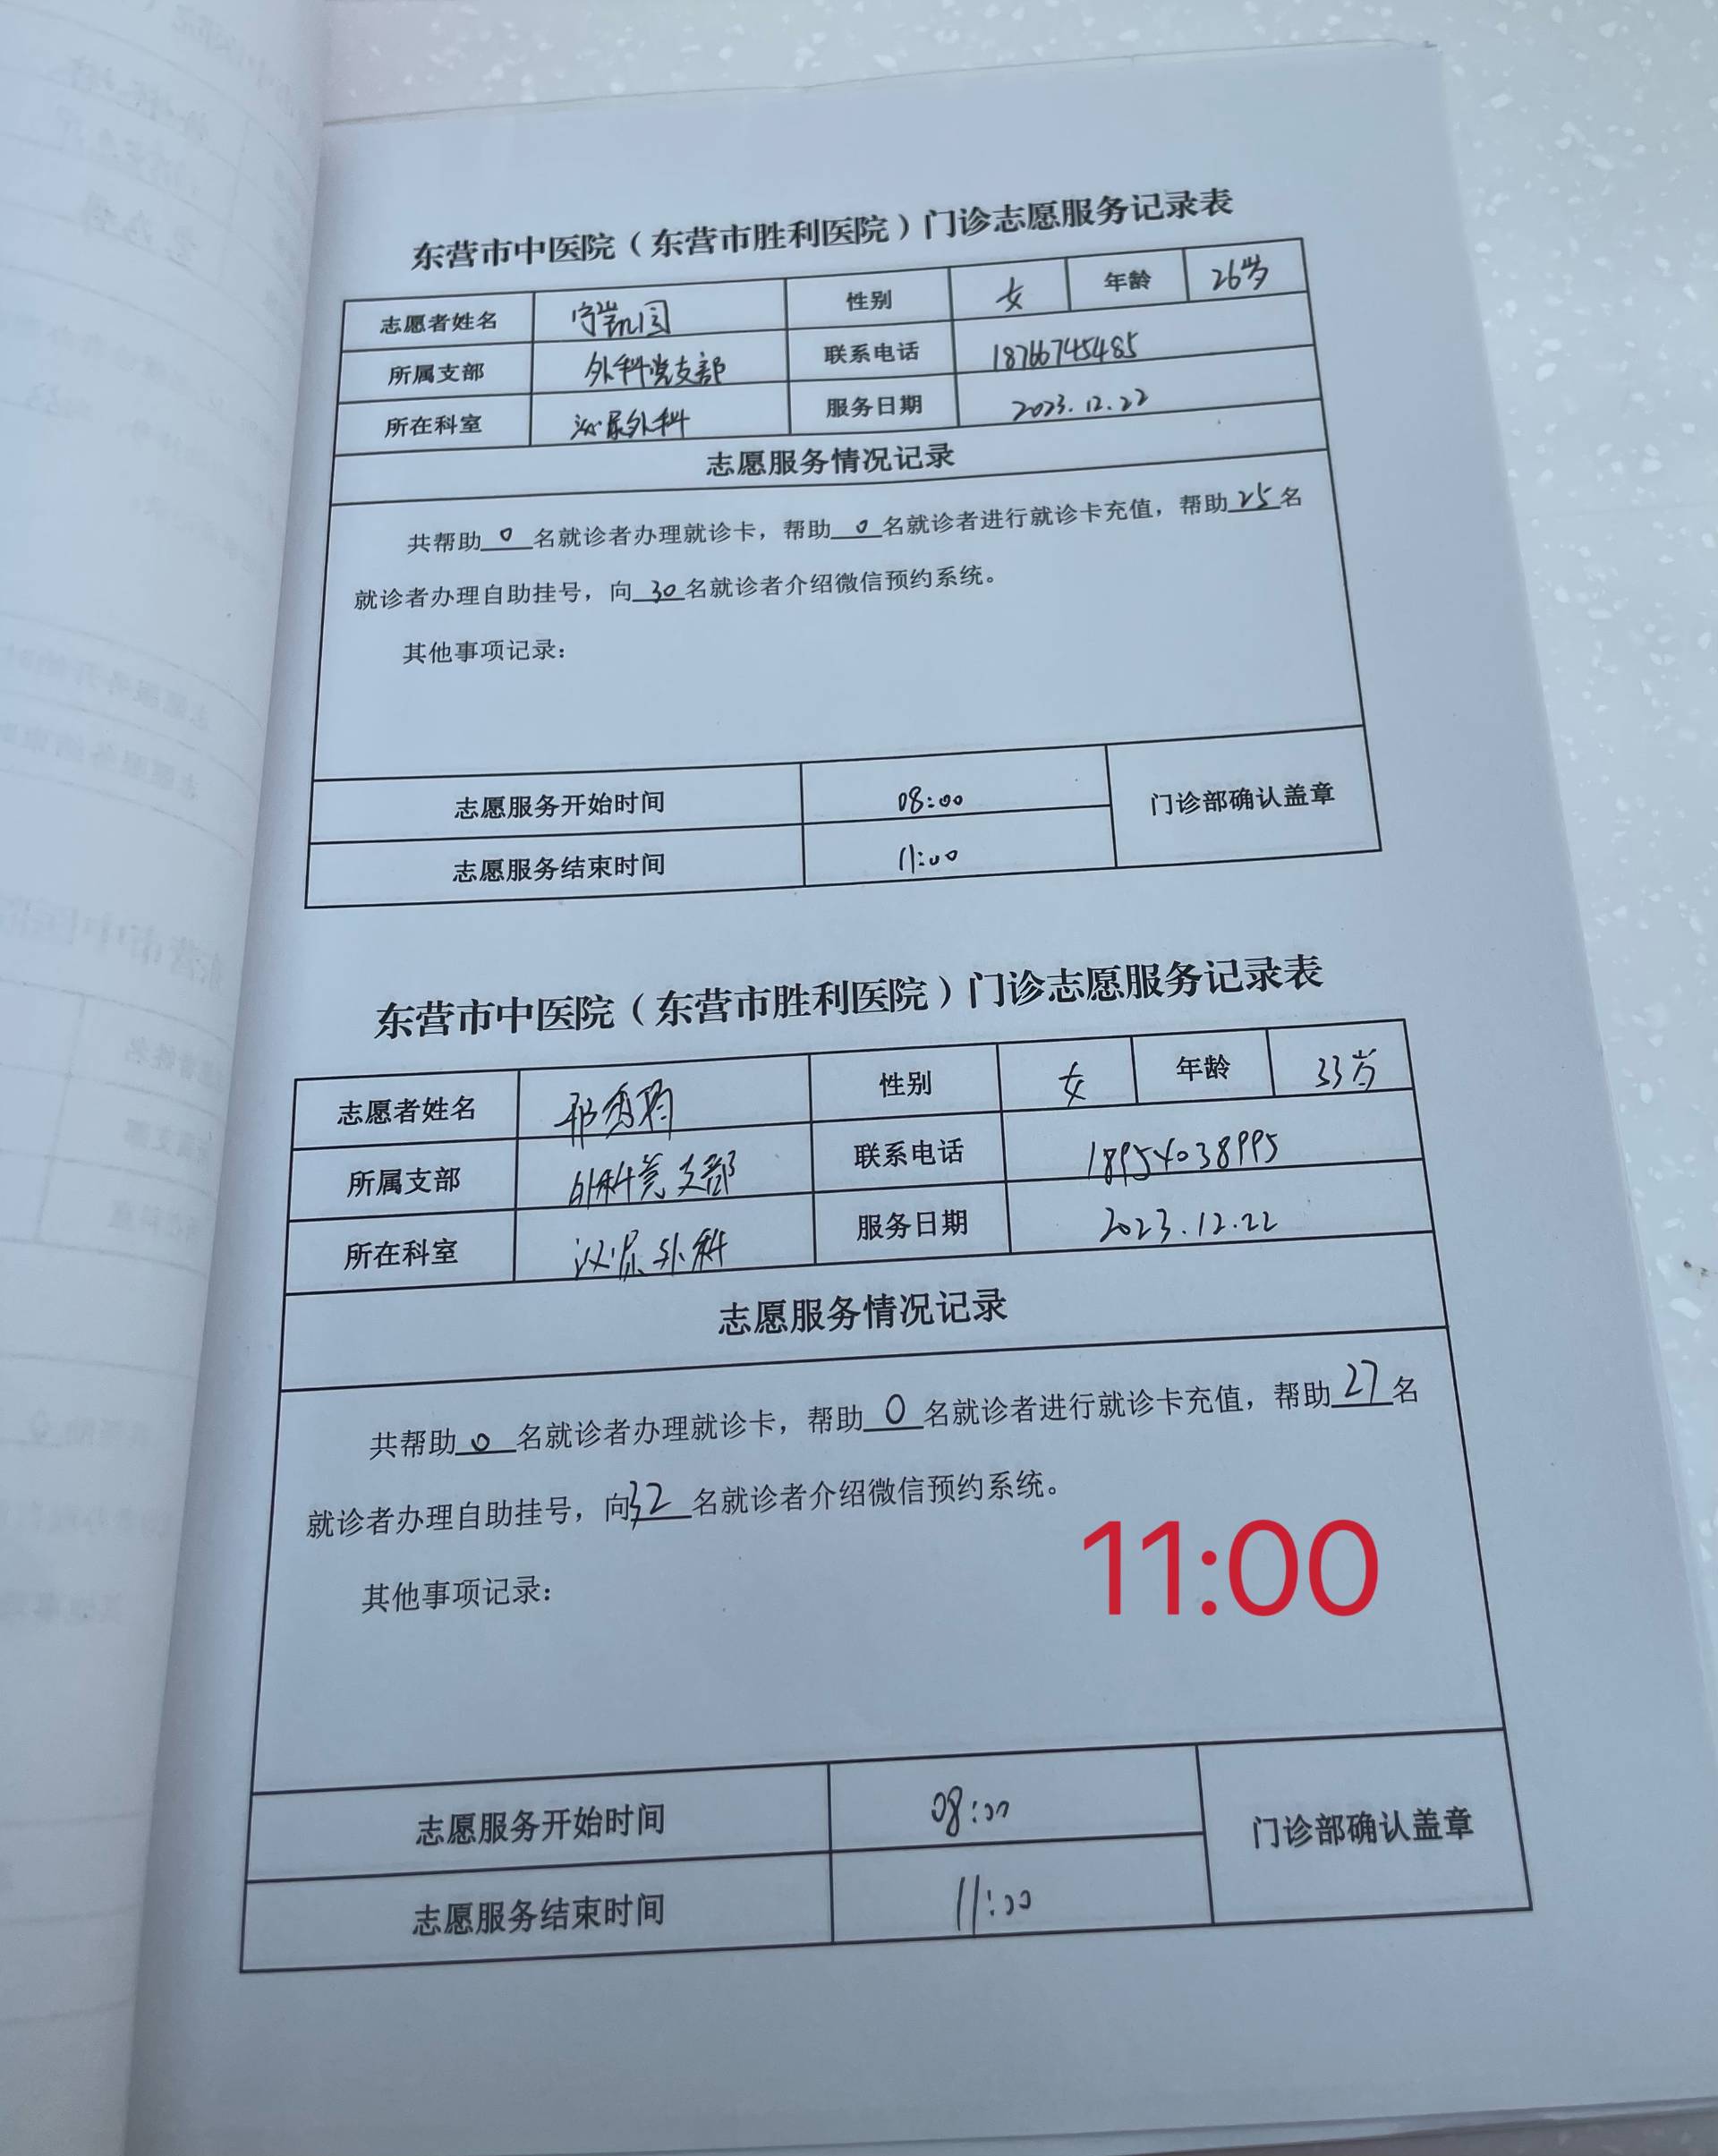 东营市中医院（东营市胜利医院）门诊志愿服务记录表
志愿者姓名 宁凯园 性别 女 年龄 26岁
所属支部 外科党支部 联系电话 18766745485
所在科室 泌尿外科 服务日期 2023.12.22
志愿服务情况记录
共帮助0名就诊者办理就诊卡，帮助0名就诊者进行就诊卡充值，帮助25名
就诊者办理自助挂号，向30名就诊者介绍微信预约系统。
其他事项记录：
志愿服务开始时间 08:00 门诊部确认盖章
志愿服务结束时间 11:00
东营市中医院（东营市胜利医院）门诊志愿服务记录表
志愿者姓名 性别 女 年龄 33岁
所属支部 外科党支部 联系电话 18954038995
所在科室 泌尿外科 服务日期 2023.12.22
志愿服务情况记录
共帮助0名就诊者办理就诊卡，帮助0名就诊者进行就诊卡充值，帮助27名
就诊者办理自助挂号，向32名就诊者介绍微信预约系统。
其他事项记录：
11:00
志愿服务开始时间 08:00 门诊部确认盖章
志愿服务结束时间 11:00